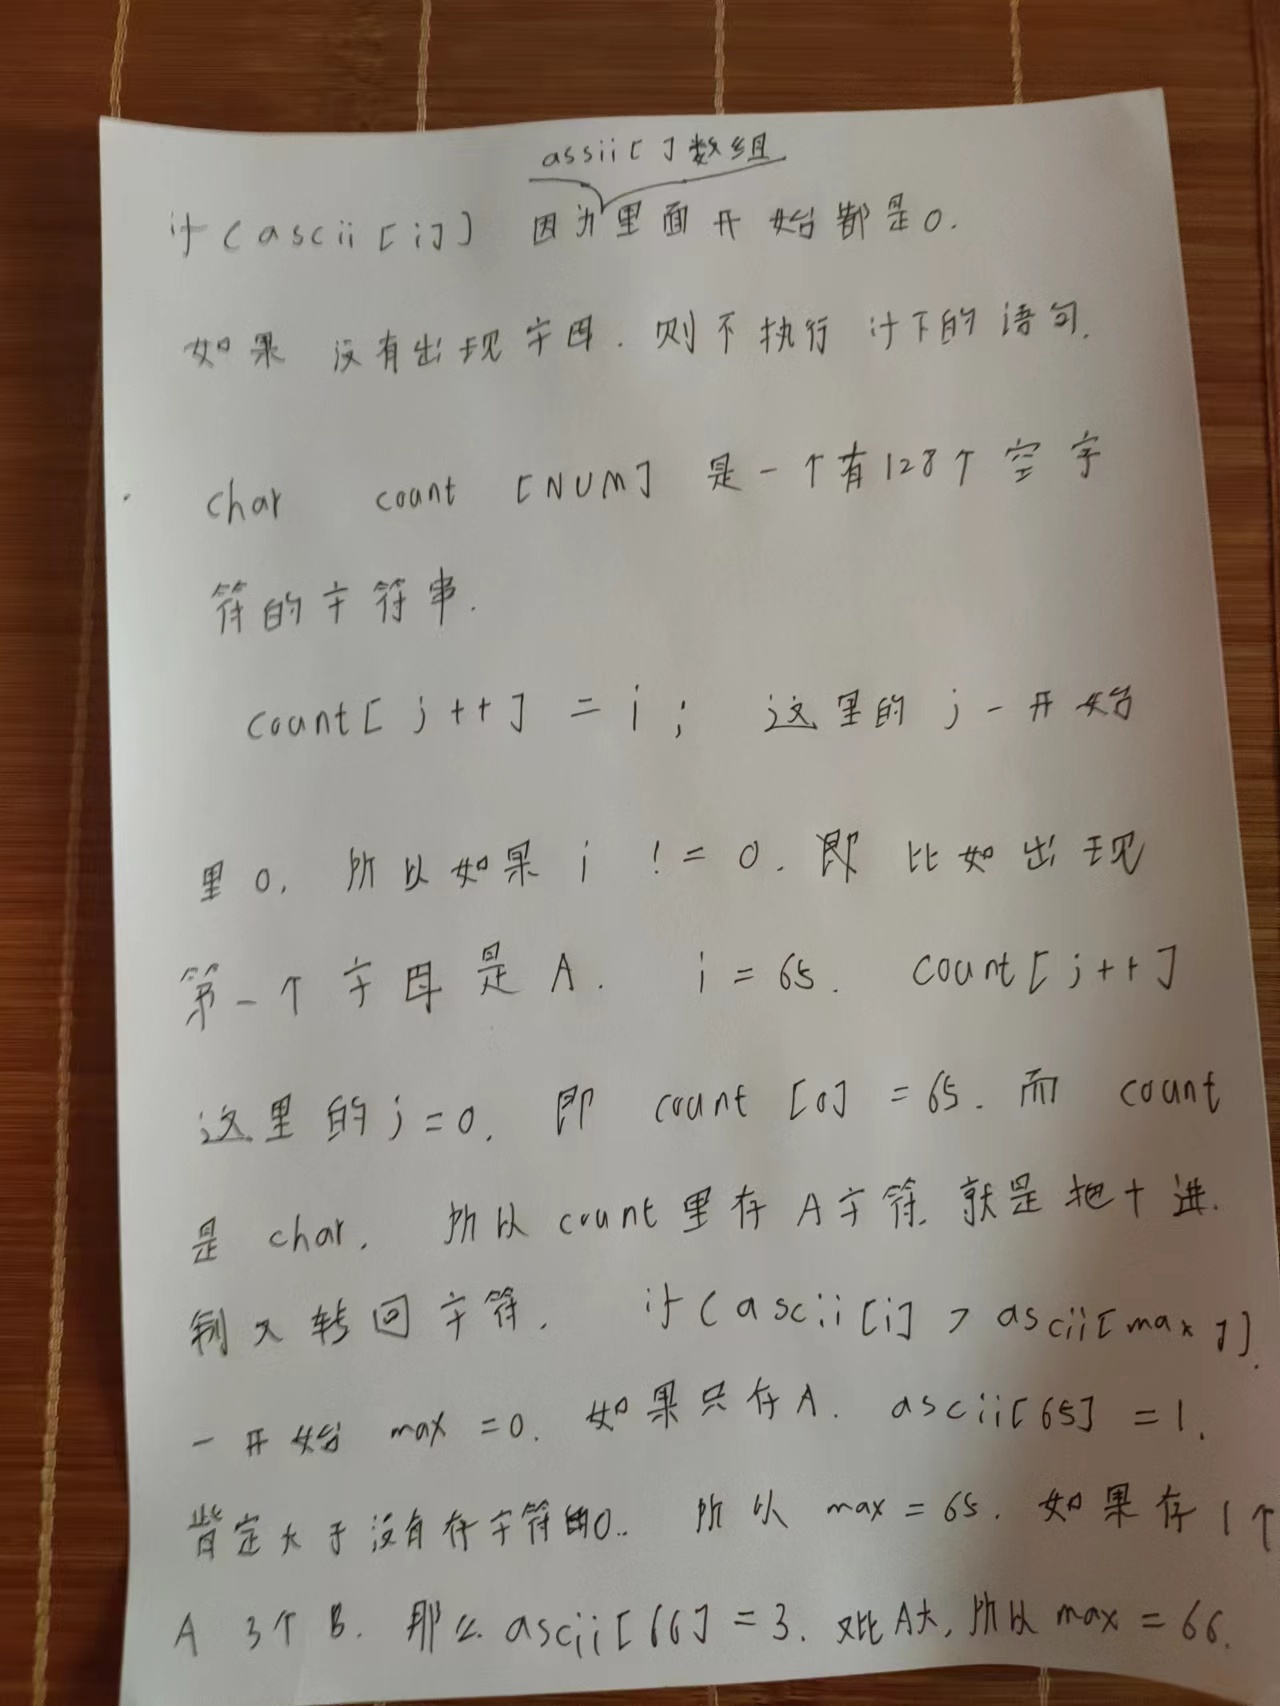 assii[ ]数组
if(ascii[i]) 因为里面开始都是0.
如果 没有出现字母. 则不执行 if下的语句.
char count [NUM] 是一个有128个空字
符的字符串.
count[j++] = i; 这里的 j 一开始
里0. 所以如果 i != 0. 即 比如出现
第一个字母是A. i = 65. count[j++]
这里的j=0. 即 count [0] = 65. 而 count
是 char. 所以 count里存 A字符. 就是把十进.
制又转回字符. if(ascii[i] > ascii[max]).
一开始 max = 0. 如果只存A. ascii[65] = 1.
肯定大于没有存字符的0.. 所以 max = 65. 如果存1个
A 3个B. 那么 ascii[66] = 3. 又比A大, 所以 max = 66.